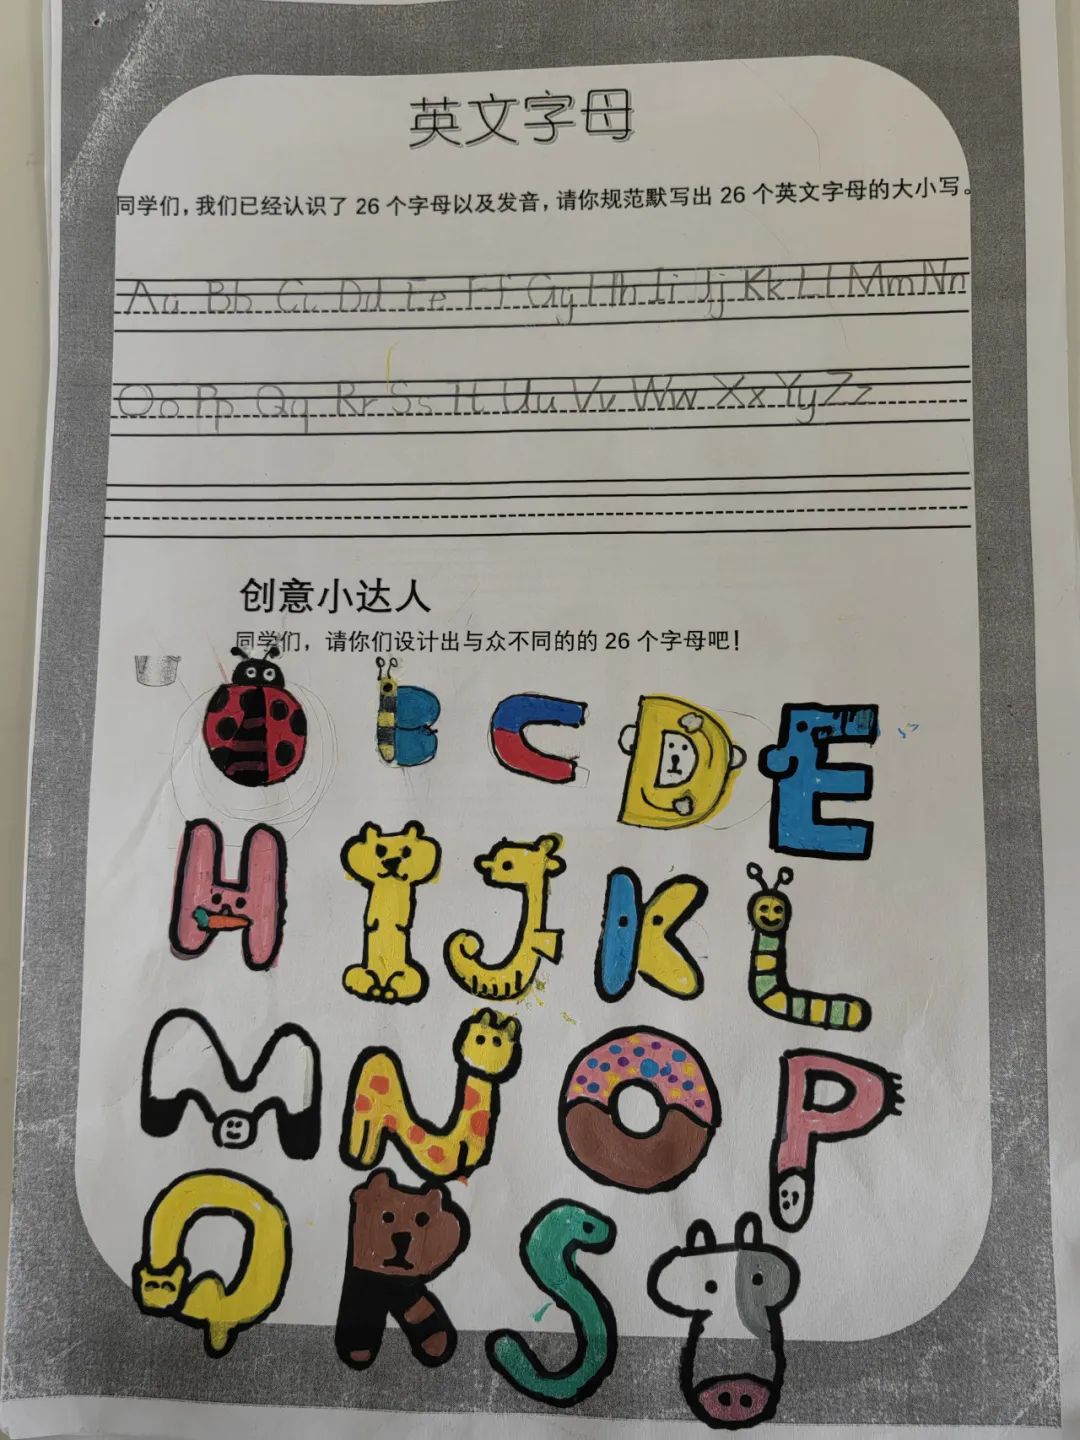 英文字母
同学们，我们已经认识了 26 个字母以及发音，请你规范默写出 26 个英文字母的大小写。
Aa Bb Cc Dd Ee Ff Gg Hh Ii Jj Kk Ll Mm Nn
Oo Pp Qq Rr Ss Tt Uu Vv Ww Xx Yy Zz
创意小达人
同学们，请你们设计出与众不同的的 26 个字母吧！
B C D E
H I J K L
M N O P
Q R S T